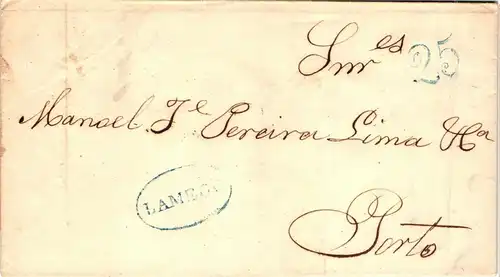 Snr es 25
Manoel Je Pereira Lima & Ca
LAMEGO
Porto